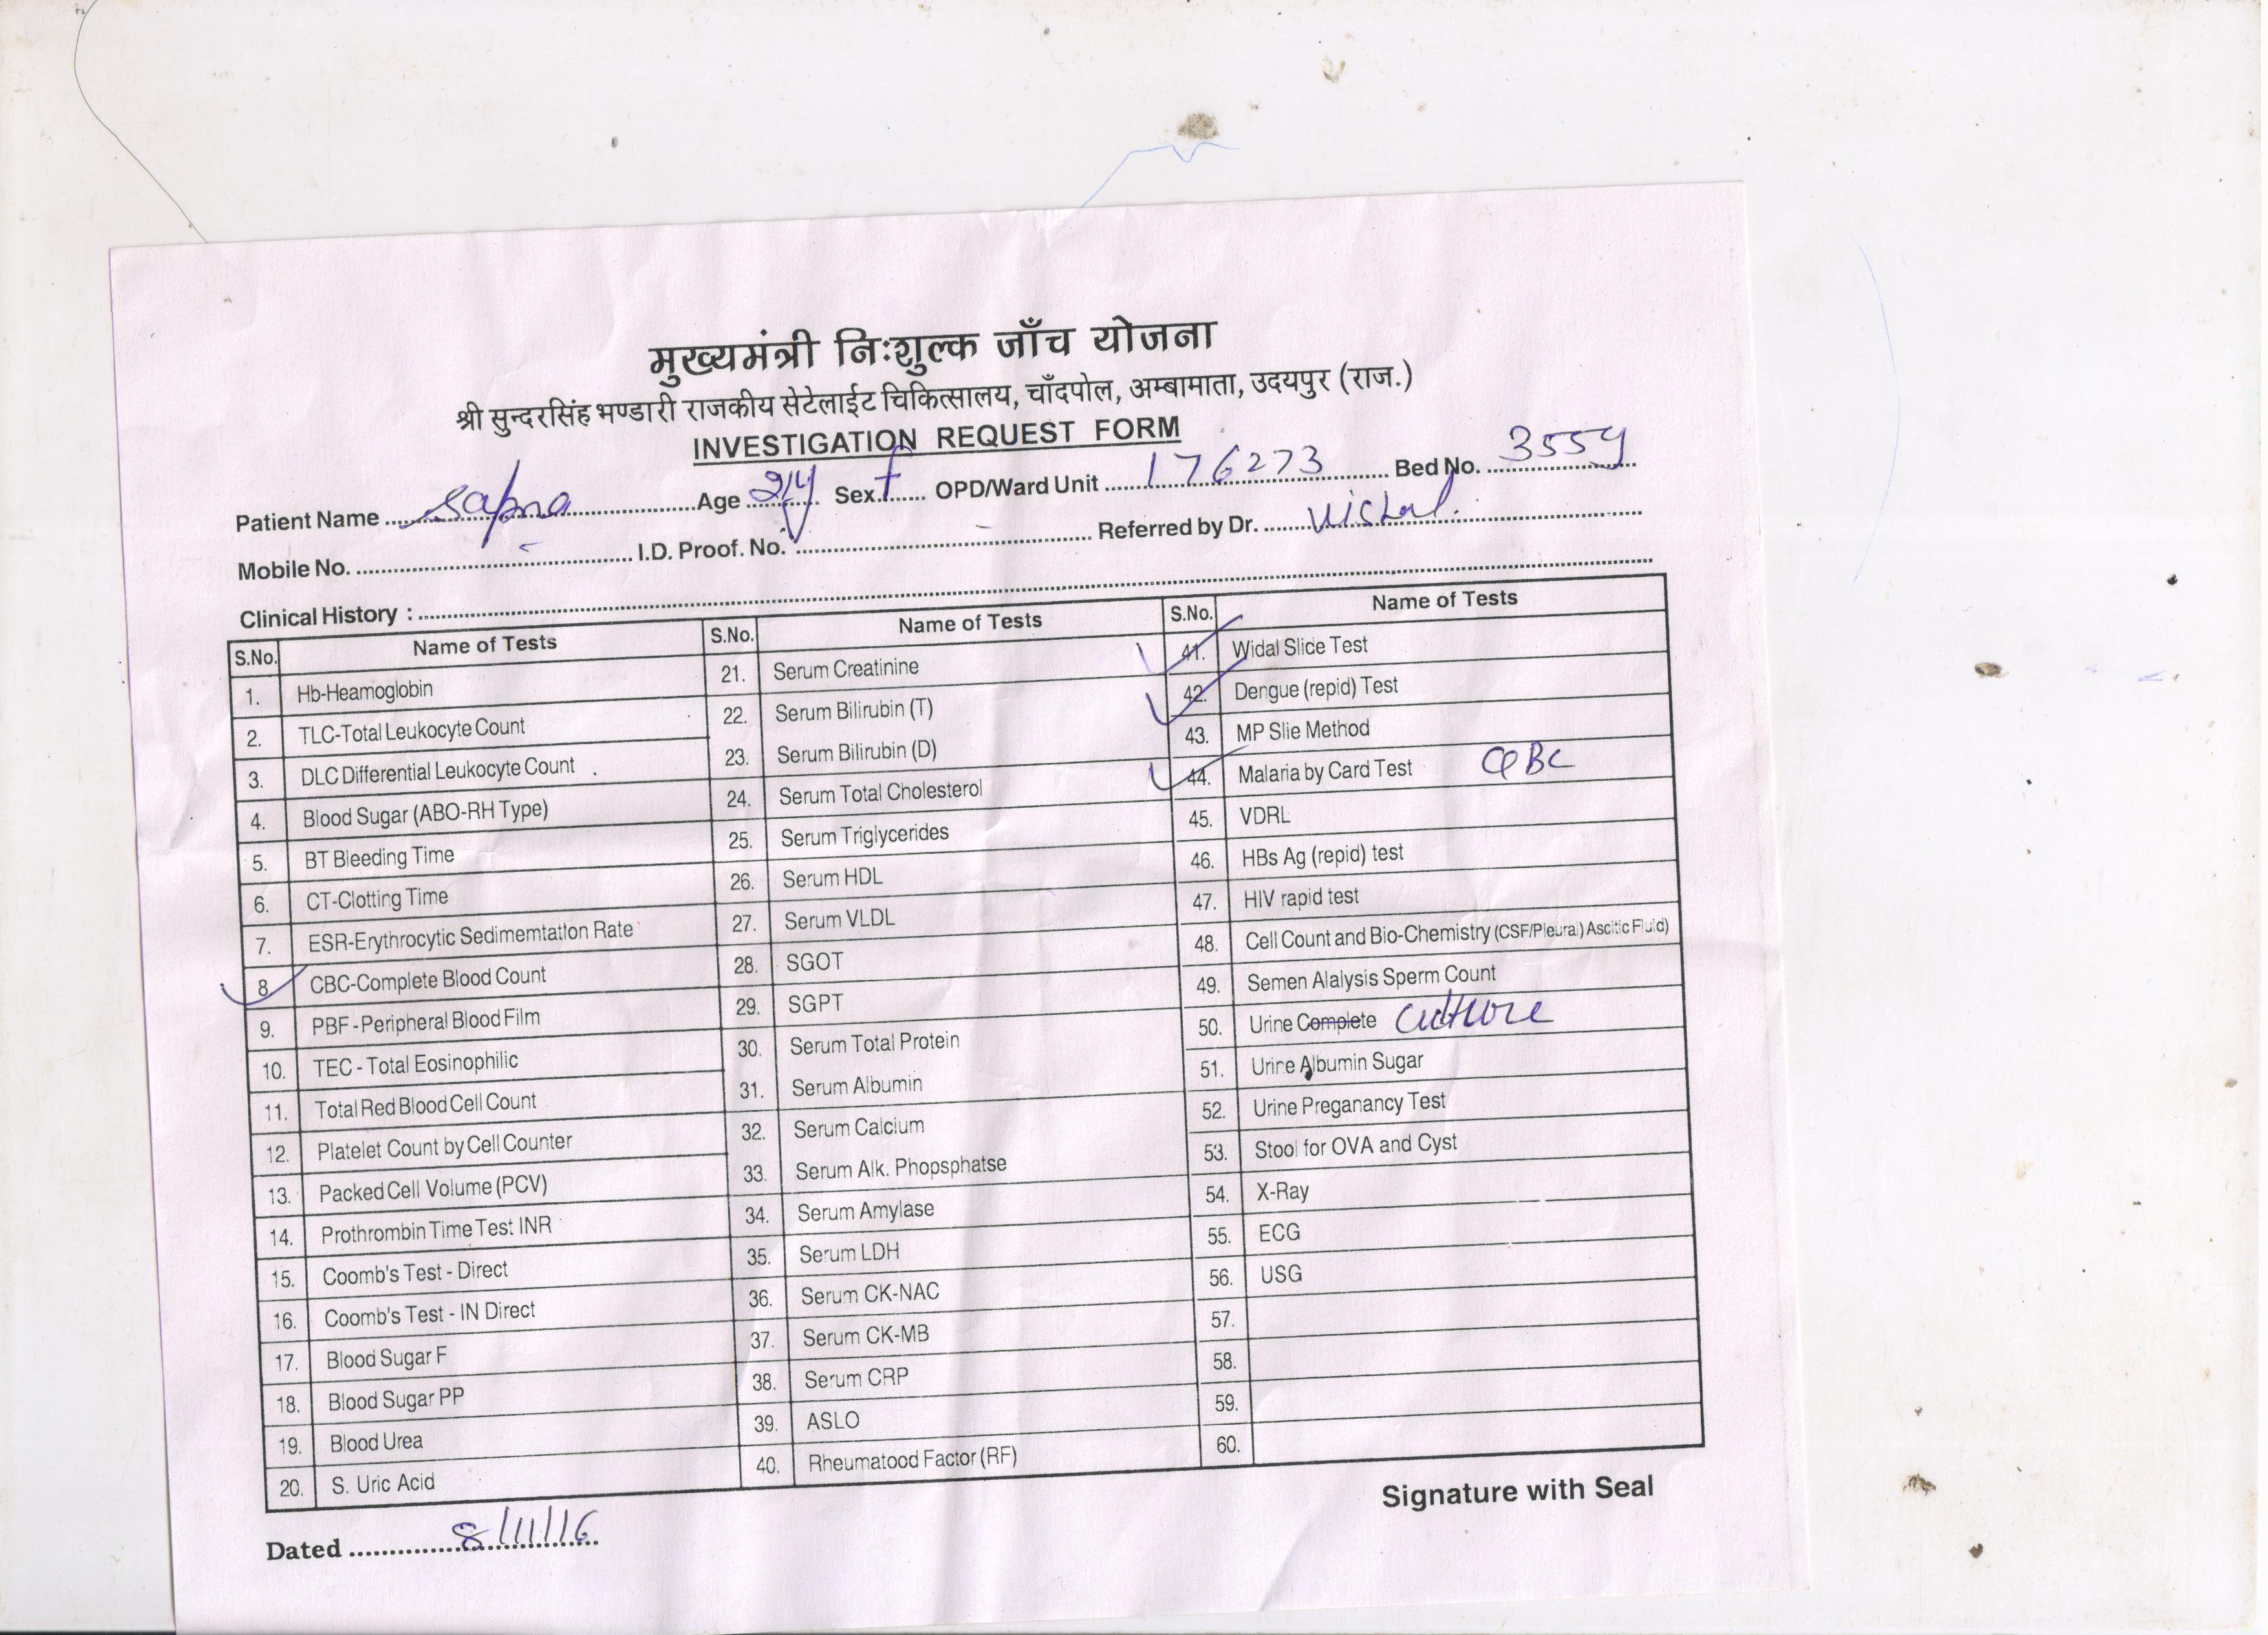 मुख्यमंत्री निःशुल्क जाँच योजना
श्री सुन्दरसिंह भण्डारी राजकीय सेटेलाईट चिकित्सालय, चाँदपोल, अम्बामाता, उदयपुर (राज.)
INVESTIGATION REQUEST FORM
Patient Name Sapna Age Sex f OPD/Ward Unit 176273 Bed No. 3559
Mobile No. - I.D. Proof. No. - Referred by Dr. Vishal.
Clinical History :
S.No. Name of Tests S.No. Name of Tests S.No. Name of Tests
1. Hb-Heamoglobin 21. Serum Creatinine 41. Widal Slice Test
2. TLC-Total Leukocyte Count 22. Serum Bilirubin (T) 42. Dengue (repid) Test
3. DLC Differential Leukocyte Count 23. Serum Bilirubin (D) 43. MP Slie Method
4. Blood Sugar (ABO-RH Type) 24. Serum Total Cholesterol 44. Malaria by Card Test QBC
5. BT Bleeding Time 25. Serum Triglycerides 45. VDRL
6. CT-Clotting Time 26. Serum HDL 46. HBs Ag (repid) test
7. ESR-Erythrocytic Sedimemtation Rate 27. Serum VLDL 47. HIV rapid test
8 CBC-Complete Blood Count 28. SGOT 48. Cell Count and Bio-Chemistry (CSF/Pleural) Ascitic Fluid)
9. PBF - Peripheral Blood Film 29. SGPT 49. Semen Alalysis Sperm Count
10. TEC - Total Eosinophilic 30. Serum Total Protein 50. Urine Complete Culture
11. Total Red Blood Cell Count 31. Serum Albumin 51. Urine Albumin Sugar
12. Platelet Count by Cell Counter 32. Serum Calcium 52. Urine Preganancy Test
13. Packed Cell Volume (PCV) 33. Serum Alk. Phopsphatse 53. Stool for OVA and Cyst
14. Prothrombin Time Test INR 34. Serum Amylase 54. X-Ray
15. Coomb's Test - Direct 35. Serum LDH 55. ECG
16. Coomb's Test - IN Direct 36. Serum CK-NAC 56. USG
17. Blood Sugar F 37. Serum CK-MB 57.
18. Blood Sugar PP 38. Serum CRP 58.
19. Blood Urea 39. ASLO 59.
20. S. Uric Acid 40. Rheumatood Factor (RF) 60.
Signature with Seal
Dated 8/11/16